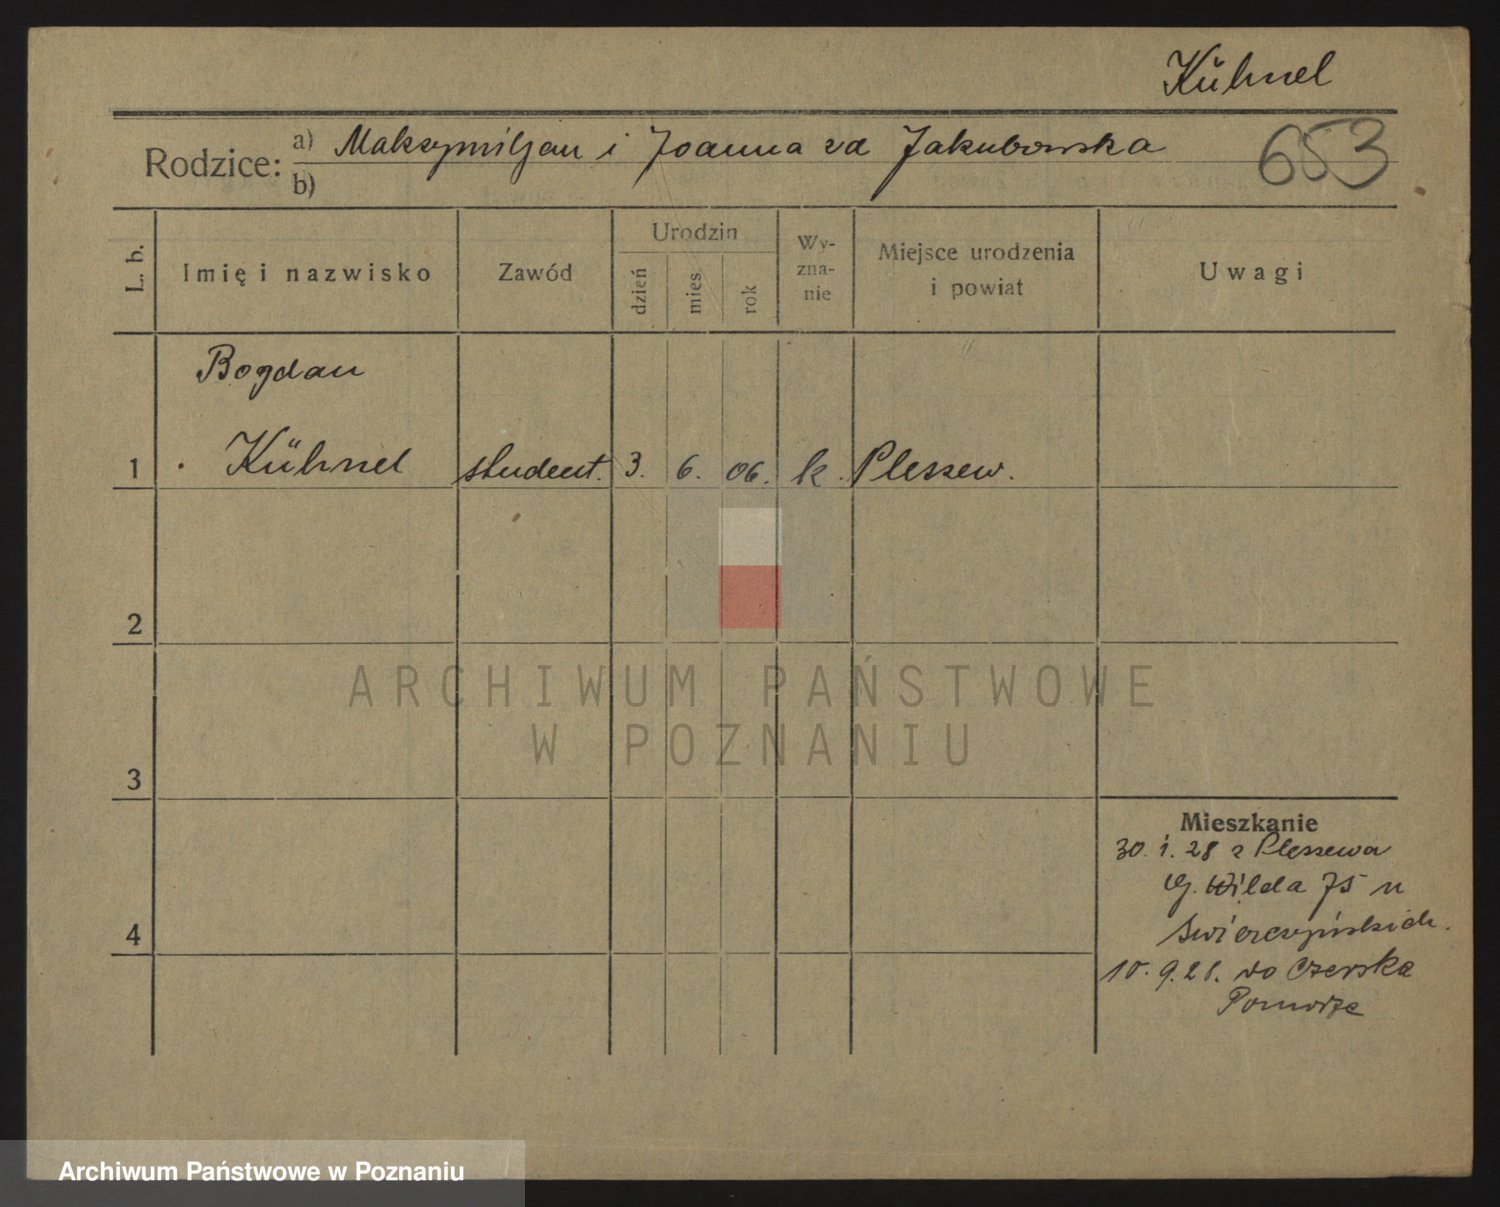 Kühnel
Rodzice: a) Maksymiljan i Joanna zd Jakubowska 653
b)
L. b. Imię i nazwisko Zawód Urodzin dzień mies. rok Wy-zna-nie Miejsce urodzenia i powiat Uwagi
Bogdan
1 Kühnel student. 3. 6. 06. k. Pleszew.
2
3
4
Mieszkanie
30. 1. 28 z Pleszewa
G. Wilda 75 u
Świerczyńskich.
10. 9. 28. do Czerska
Pomorze
ARCHIWUM PAŃSTWOWE
W POZNANIU
Archiwum Państwowe w Poznaniu